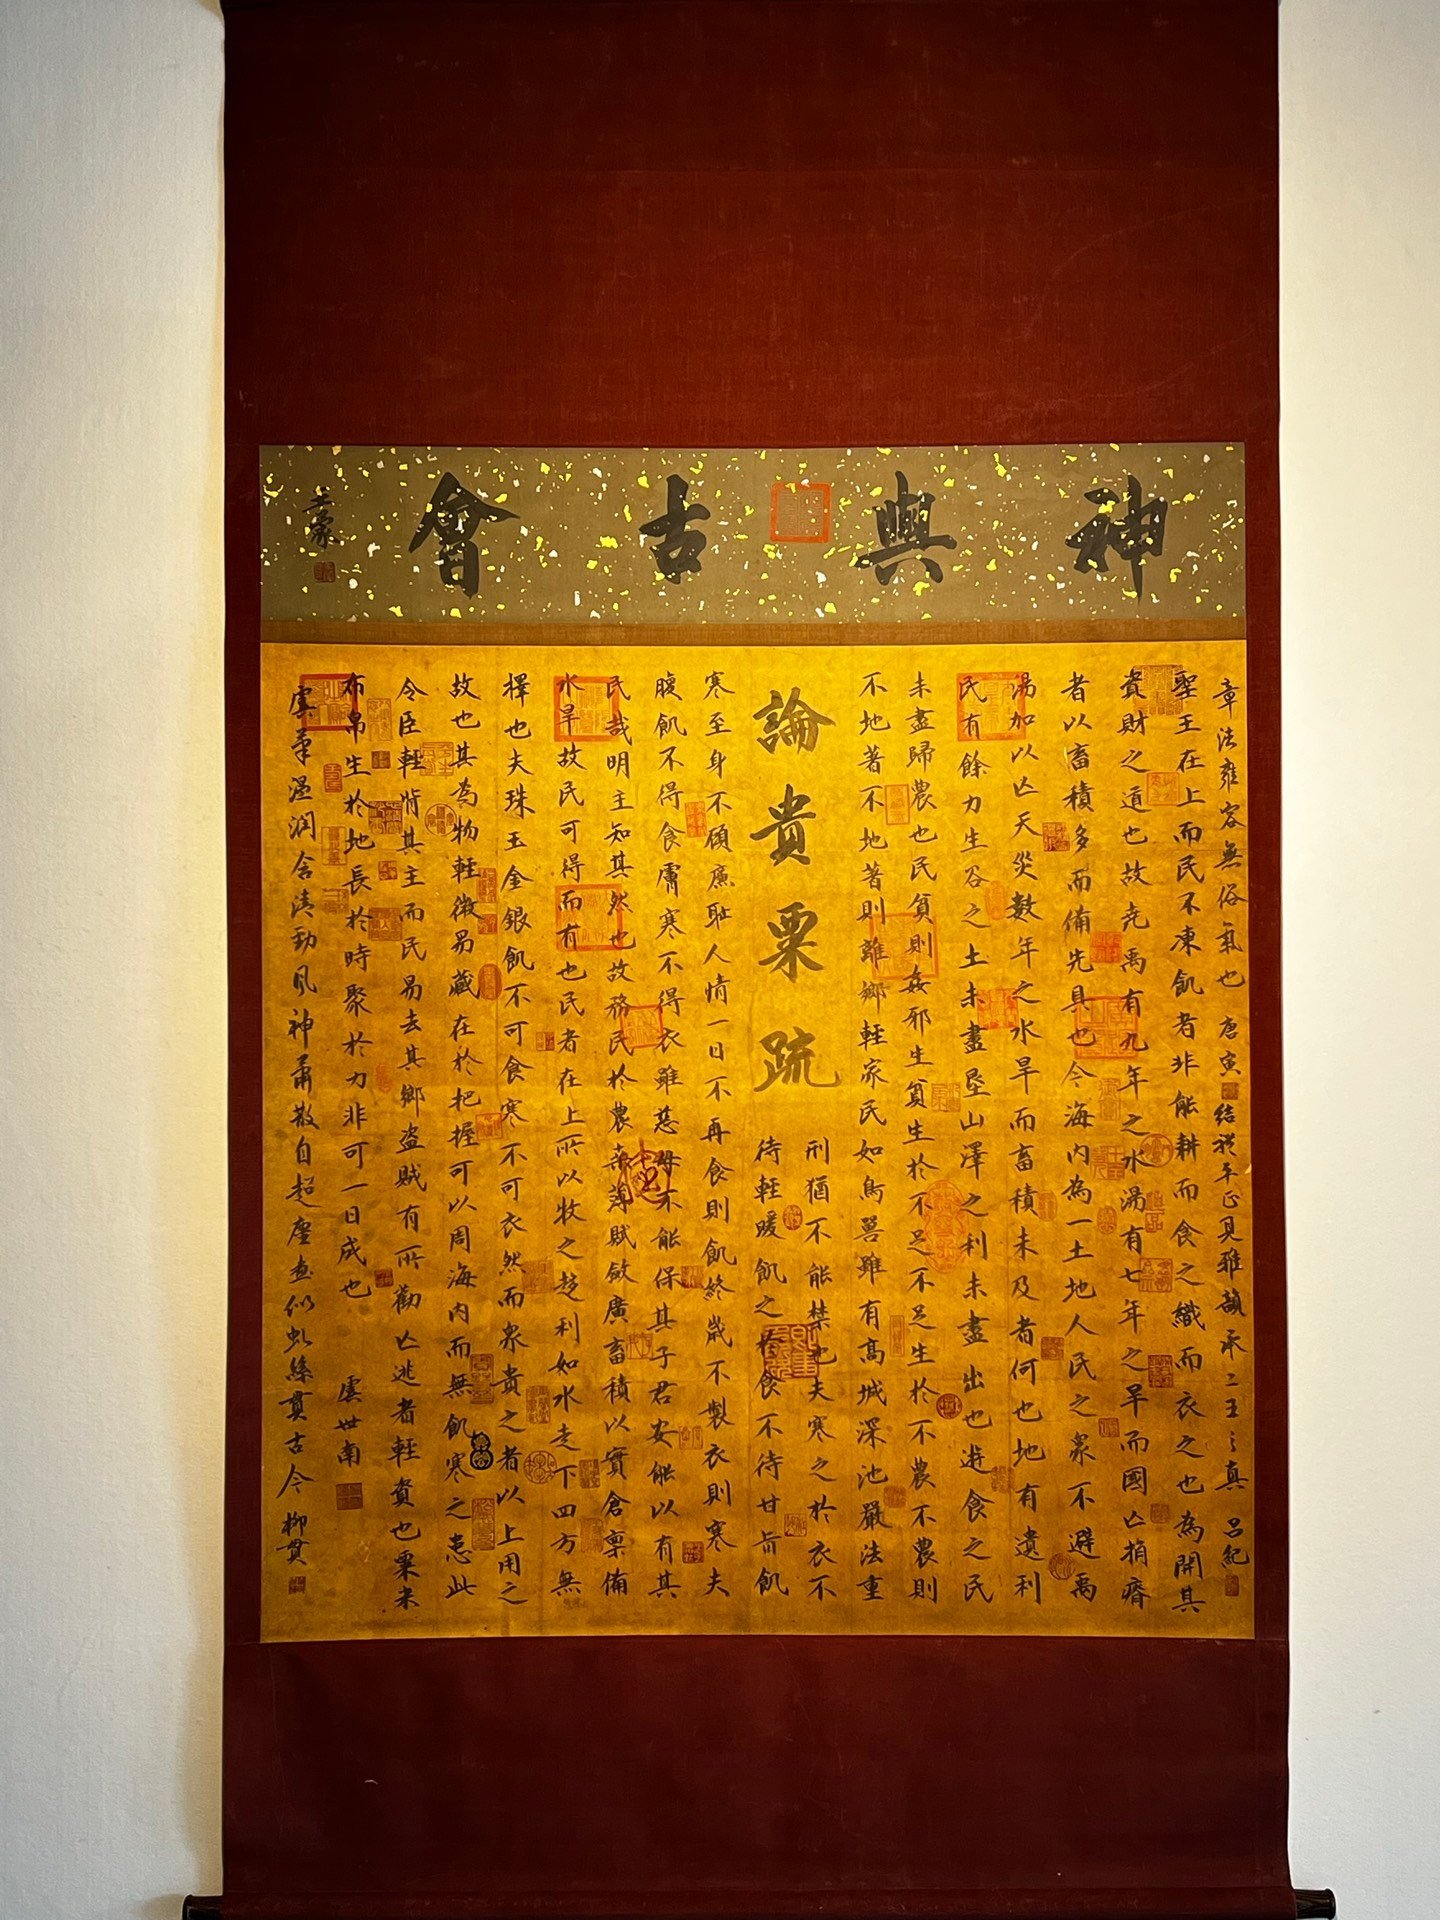 神與古會
王蒙
章法雍容無俗氣也 唐寅 結裕平正見雅韻承二王之真 呂紀
聖王在上而民不凍飢者非能耕而食之織而衣之也為開其
資財之道也故堯禹有九年之水湯有七年之旱而國亡捐瘠
者以畜積多而備先具也今海內為一土地人民之眾不避禹
湯加以亡天災數年之水旱而畜積未及者何也地有遺利
民有餘力生谷之土未盡墾山澤之利未盡出也遊食之民
未盡歸農也民貧則姦邪生貧生於不足不足生於不農不農則
不地著不地著則離鄉輕家民如鳥獸雖有高城深池嚴法重
論貴粟疏
刑猶不能禁也夫寒之於衣不
待輕暖飢之於食不待甘旨飢
寒至身不顧廉恥人情一日不再食則飢終歲不製衣則寒夫
腹飢不得食膚寒不得衣雖慈母不能保其子君安能以有其
民哉明主知其然也故務民於農桑薄賦斂廣畜積以實倉廩備
水旱故民可得而有也民者在上所以牧之趍利如水走下四方無
擇也夫珠玉金銀飢不可食寒不可衣然而眾貴之者以上用之
故也其為物輕微易藏在於把握可以周海內而無飢寒之患此
令臣輕背其主而民易去其鄉盜賊有所勸亡逃者輕資也粟米
布帛生於地長於時聚於力非可一日成也 虞世南
虞筆溫潤含清勁風神蕭散自超塵畫似虬絲貫古今 柳貫